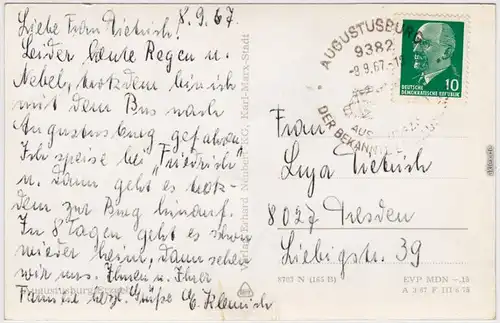 8.9.67
Liebe Frau Dietrich!
Leider heute Regen u.
Nebel, trotzdem bin ich
mit dem Bus nach
Augustusburg gefahren.
Ich speise bei „Friedrich"
u. dann geht es trotz-
dem zur Burg hinauf.
In 8 Tagen geht es schon
wieder heim, dann sehen
wir uns. Ihnen u. Ihrer
Familie herzl. Grüße E. Klemich
Augustusburg/Erzgeb.
Verlag Erhard Neubert KG, Karl-Marx-Stadt
AUGUSTUSBURG
9382
-9.9.67
DER BEKANNTE
10
DEUTSCHE
DEMOKRATISCHE REPUBLIK
Frau
Luya Dietrich
8027 Dresden
Liebigstr. 39
8783 N (165 B)
EVP MDN -.15
A 3 67 F III 6 78